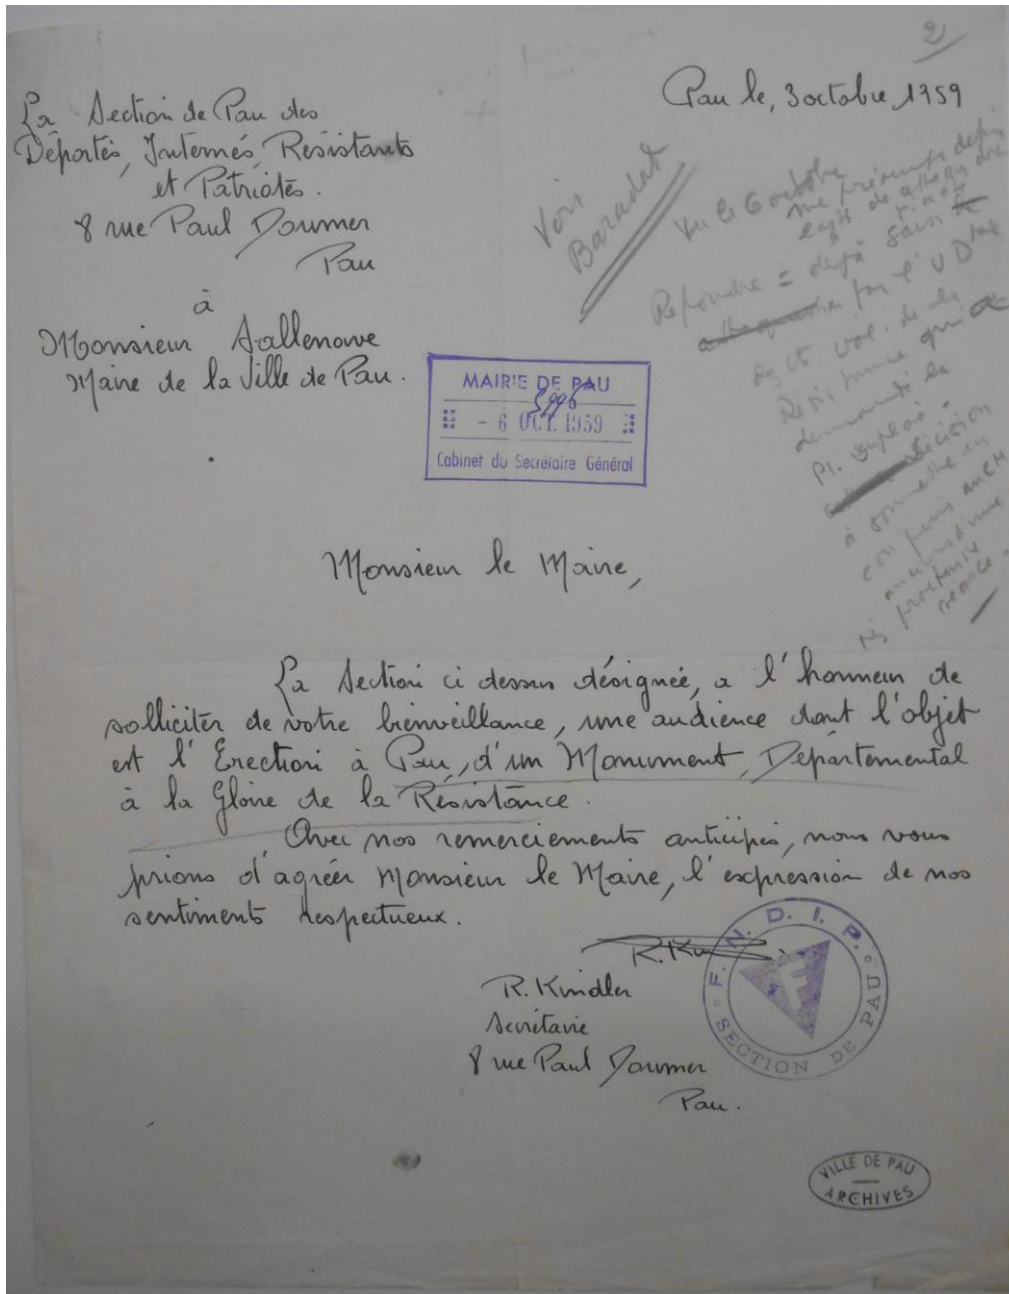 2
Pau le, 3 octobre 1959
La Section de Pau des
Déportés, Internés, Résistants
et Patriotes.
8 rue Paul Doumer
Pau
à
Monsieur Sallenave
Maire de la Ville de Pau.
Voir
Baradat
Vu le 6 octobre
Répondre = déjà saisi
par l'UD
demandé la
décision
à soumettre au
prochaine
séance
MAIRIE DE PAU
5996
- 6 OCT. 1959
Cabinet du Secrétaire Général
Monsieur le Maire,
La Section ci dessus désignée, a l'honneur de
solliciter de votre bienveillance, une audience dont l'objet
est l'Erection à Pau, d'un Monument, Départemental
à la Gloire de la Résistance.
Avec nos remerciements anticipés, nous vous
prions d'agréer Monsieur le Maire, l'expression de nos
sentiments respectueux.
R. Kindler
Secrétaire
8 rue Paul Doumer
Pau.
F. N. D. I. P.
F
SECTION DE PAU
VILLE DE PAU
ARCHIVES